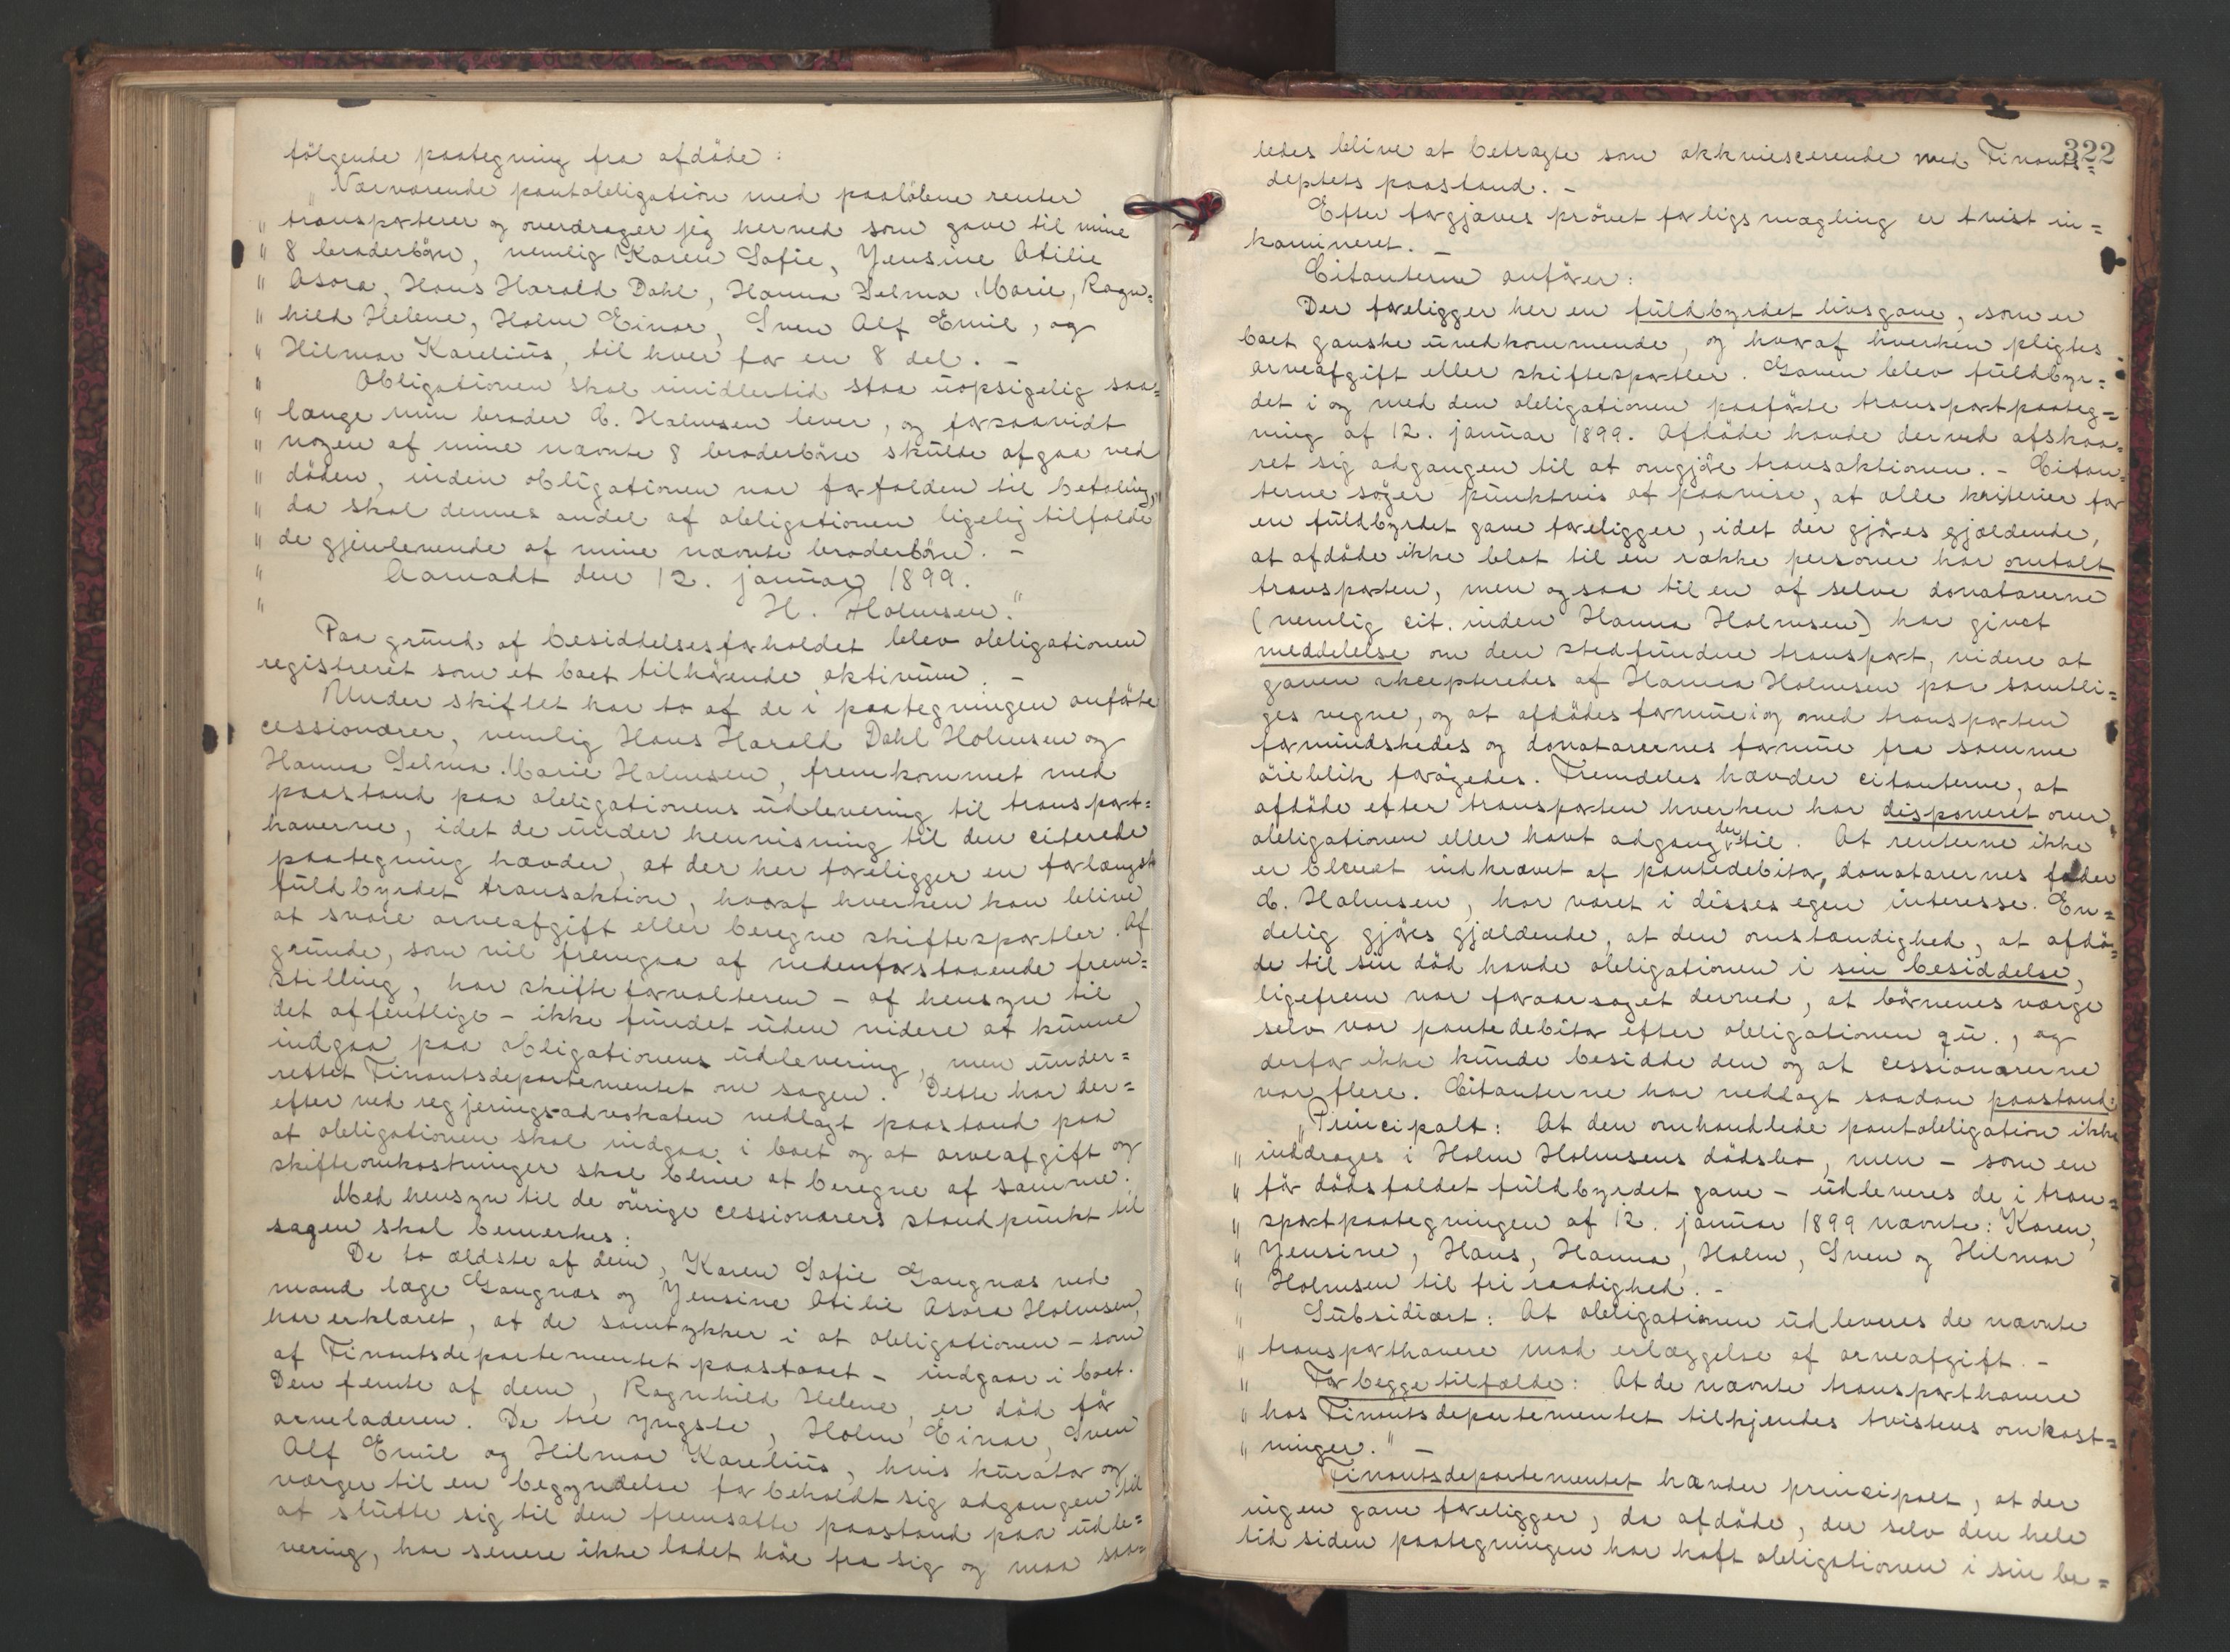 følgende paategning fra afdøde:
„Nærværende pantobligation med paaløbne renter
„ transporterer og overdrager jeg herved som gave til mine
„ 8 broderbørn, nemlig Karen Sofie, Jensine Otilie
„ Asora, Hans Harald Dahl, Hanna Selma Marie, Ragn=
„ hild Helene, Holm Einar, Sven Alf Emil, og
„ Hilmar Karelius, til hver for en 8 del. –
„ Obligationen skal imidlertid staa uopsigelig saa=
„ længe min broder C. Holmsen lever, og forsaavidt
„ nogen af mine nævnte 8 broderbørn skulde afgaa ved
„ døden, inden obligationen var forfalden til betaling,
„ da skal dennes andel af obligationen ligelig tilfalde
„ de gjenlevende af mine nævnte broderbørn. –
„ den 12. januar 1899.
„ H. Holmsen."
Paa grund af besiddelsesforholdet blev obligationen
registreret som et boet tilhørende aktivum. –
Under skiftet har to af de i paategningen anførte
cessionærer, nemlig Hans Harald Dahl Holmsen og
Hanna Selma Marie Holmsen, fremkommet med
paastand paa obligationens udlevering til transport=
haverne, idet de under henvisning til den citerede
paategning hævder, at der her foreligger en forlængst
fuldbyrdet transaktion, hvoraf hverken kan blive
at svare arveafgift eller beregne skiftesportler. Af
grunde, som vil fremgaa af nedenforstaaende frem=
stilling, har skifteforvalteren – af hensyn til
det offentlige – ikke fundet uden videre at kunne
indgaa paa obligationens udlevering, men under=
rettet Finantsdepartementet om sagen. Dette har der=
efter ved regjeringsadvokaten nedlagt paastand paa
at obligationen skal indgaa i boet og at arveafgift og
skifteomkostninger skal blive at beregne af samme.
Med hensyn til de øvrige cessionærers standpunkt til
sagen skal bemerkes:
De to ældste af dem, Karen Sofie Gangnæs ved
mand læge Gangnæs og Jensine Otilie Asora Holmsen,
har erklæret, at de samtykker i at obligationen – som
af Finantsdepartementet paastaaet – indgaar i boet.
Den femte af dem, Ragnhild Helene, er død før
arveladeren. De tre yngste, Holm Einar, Sven
Alf Emil og Hilmar Karelius, hvis kurator og
værger til en begyndelse forbeholdt sig adgangen til
at slutte sig til den fremsatte paastand paa udle=
vering, har senere ikke ladet høre fra sig og maa saa=
322
ledes blive at betragte som akkviescerende med Finants=
deptets paastand. –
Efter forgjæves prøvet forligsmægling er tvist in=
kamineret. –
Citanterne anfører:
Der foreligger her en fuldbyrdet livsgave, som er
boet ganske uvedkommende, og hvoraf hverken pligtes
arveafgift eller skiftesportler. Gaven blev fuldbyr=
det i og med den obligationen paaførte transportpaateg=
ning af 12. januar 1899. Afdøde havde derved afskaa=
ret sig adgangen til at omgjøre transaktionen. – Citan=
terne søger punktvis at paavise, at alle kriterier for
en fuldbyrdet gave foreligger, idet der gjøres gjældende,
at afdøde ikke blot til en række personer har omtalt
transporten, men ogsaa til en af selve donatarerne
(nemlig cit. inden Hanna Holmsen) har givet
meddelelse om den stedfundne transport, videre at
gaven akcepteredes af Hanna Holmsen paa samtli=
ges vegne, og at afdødes formue i og med transporten
formindskedes og donatarernes formue fra samme
øieblik forøgedes. Fremdeles hævder citanterne, at
afdøde efter transporten hverken har disponeret over
obligationen eller havt adgang dertil. At renterne ikke
er blevet indkrævet af pantedebitor, donatarernes fader
C. Holmsen, har været i disses egen interesse. En=
delig gjøres gjældende, at den omstændighed, at afdø=
de til sin død havde obligationen i sin besiddelse,
ligefrem var foraarsaget derved, at børnenes værge
selv var pantedebitor efter obligationen qu., og
derfor ikke kunde besidde den og at cessionærerne
var flere. Citanterne har nedlagt saadan paastand:
„Principalt: At den omhandlede pantobligation ikke
„ inddrages i Holm Holmsens dødsbo, men – som en
„ før dødsfaldet fuldbyrdet gave – udleveres de i tran=
„ sportpaategningen af 12. januar 1899 nævnte: Karen,
„ Jensine, Hans, Hanna, Holm, Sven og Hilmar
„ Holmsen til fri raadighed. –
„ Subsidiært: At obligationen udleveres de nævnte
„ transporthavere mod erlæggelse af arveafgift. –
„ For begge tilfælde: At de nævnte transporthavere
„ hos Finantsdepartementet tilkjendes tvistens omkost=
„ ninger." –
Finantsdepartementet hævder principalt, at der
ingen gave foreligger, da afdøde, der selv den hele
tid siden paategningen har haft obligationen i sin be=